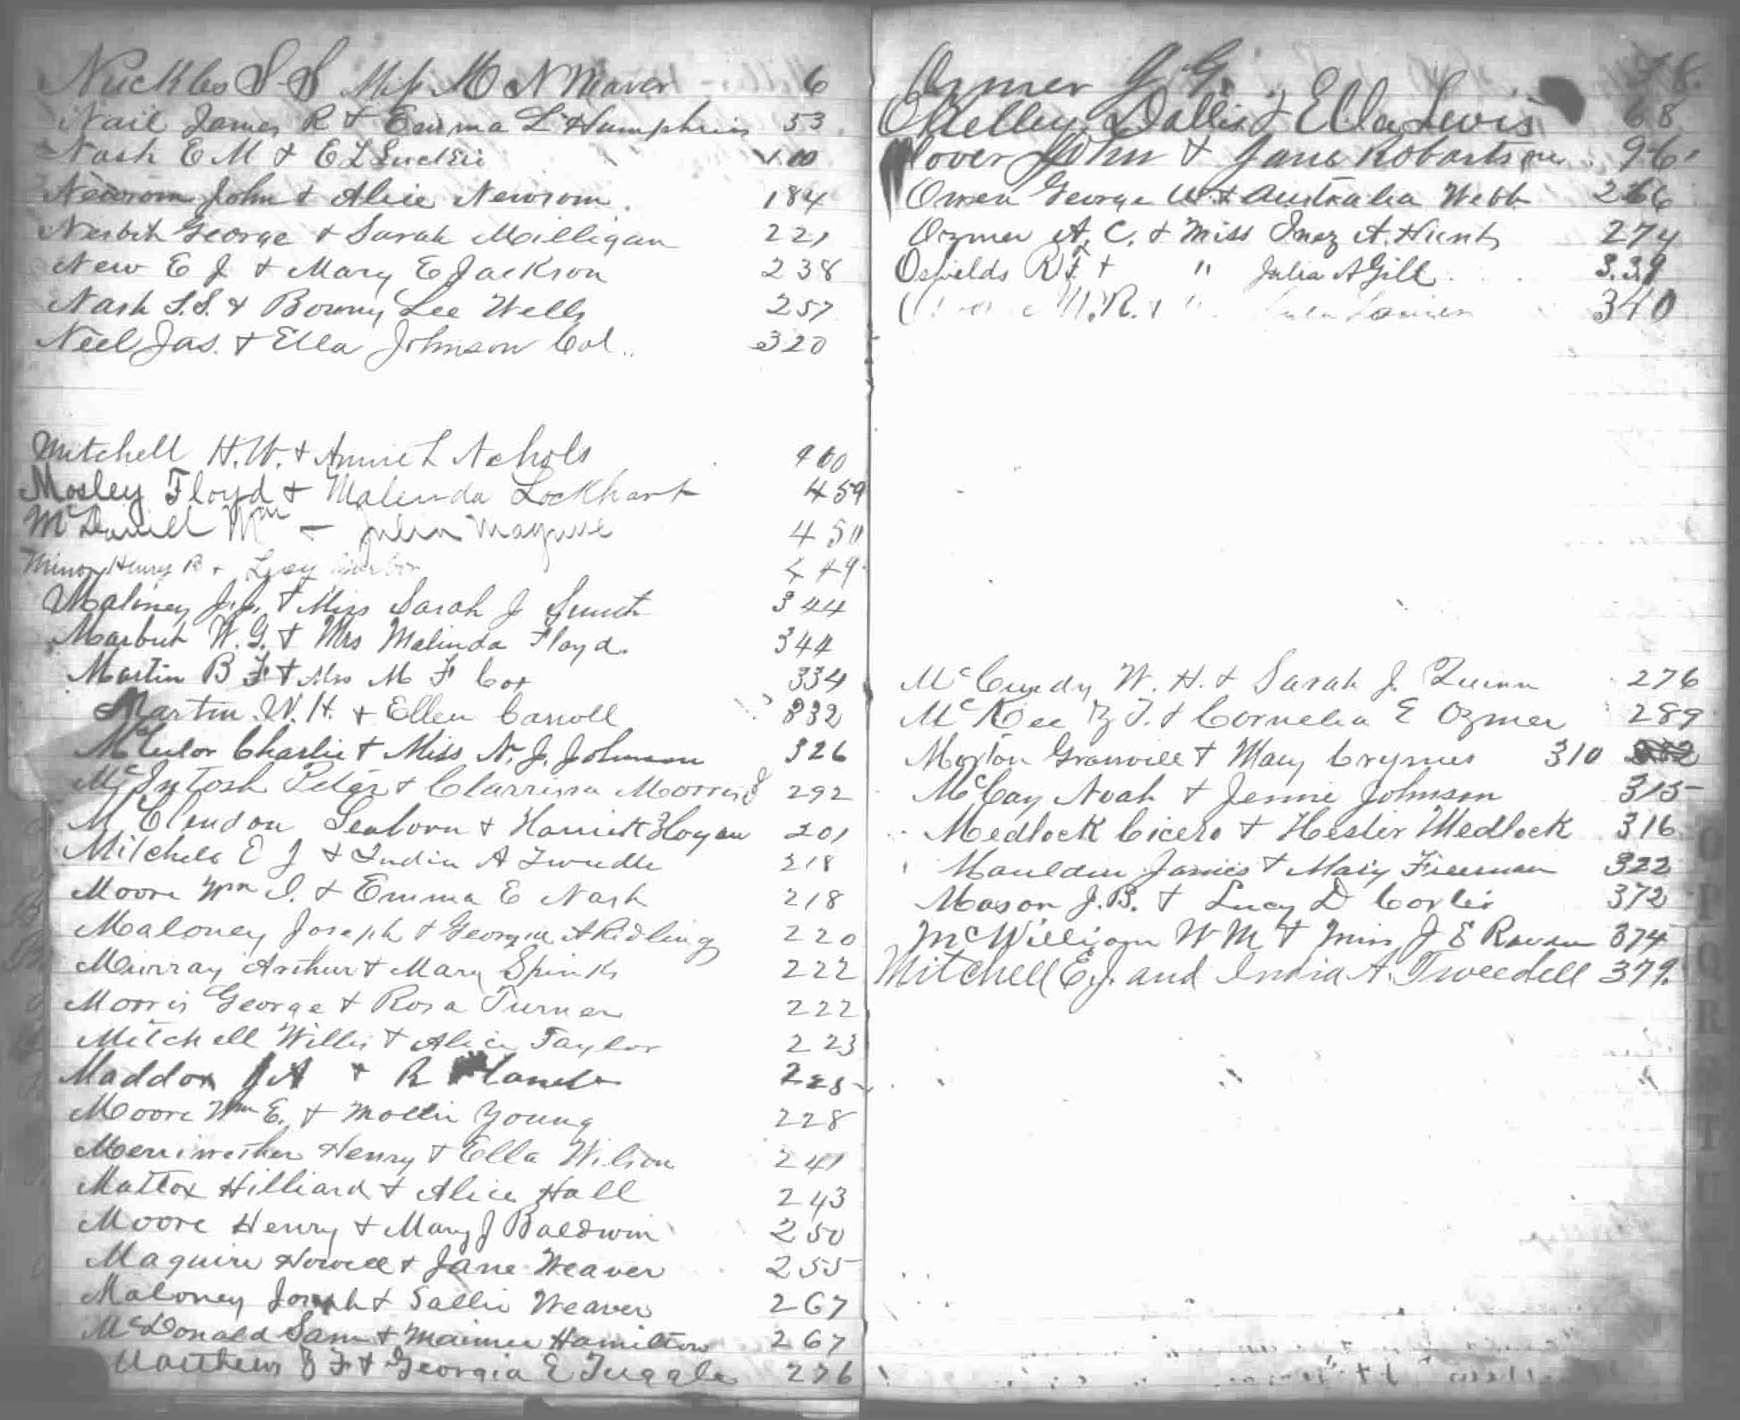 Nuckles S. S. Miss M N Maver 6
Nail James R & Emma L Humphries 53
Nash E M & E L Luckie 100
Newsom John & Alice Newsom. 184
Nesbit George & Sarah Milligan 221
New E J & Mary E Jackson 238
Nash T.S. & Bonny Lee Wells 257
Neel Jas. & Ella Johnson Col.. 320
Mitchell H.W. & Annie L Nchols 400
Mosley Floyd & Malenda Lockhart 459
McDaniell Wm — Julia Maguire 450
Minor Henry R & Lucy 449
Maliney J.J. & Miss Sarah J 344
Marbut W. G. & Mrs Malinda Floyd. 344
Martin B F & Mrs M F Cox 334
Martin W. H. & Ellen Carroll 332
Charlie & Miss N. J. Johnson 326
McIntosh Peter & Clarrissa Morris 292
McClendon Seaborn & Harriett Hogan 201
Mitchell E J & India A Tweedle 218
Moore Wm I. & Emma E Nash 218
Maloney Joseph & Georgia A Ridling 220
Murray Arthur & Mary Spinks 222
Morris George & Rosa Turner 222
Mitchell Willis & Alice Taylor 223
Maddox J A & R 225
Moore Wm E. & Mollie Young 228
Merriwether Henry & Ella Wilson 241
Mattox Hilliard & Alice Hall 243
Moore Henry & Mary J Baldwin 250
Maguire Howell & Jane Weaver 255
Maloney Joseph & Sallie Weaver 267
McDonald Sam & Maimee Hamilton 267
Matthews J F & Georgia E Tuggle 276
Ozmer G. G. 38.
OKelley Dallis & Ella Lewis 68
John & Jane Robartson 96.
Owen George W. & Australia Webb 266
Ozmer A. C. & Miss Inez A. Hunt 274
Oshields R F & " Julia A Gill. 339
M.R. & " Lanier 340
McCurdy W. H. & Sarah J. Quinn 276
McKee Z T. & Cornelia E Ozmer 289
Morton Granville & Mary Crymes 310
McCay Noah & Jennie Johnson 315
Medlock Cicero & Hester Medlock 316
Mauldin James & Mary Freeman 322
Mason J.B. & Lucy D Corlie 372
McWilliam W M & Miss J E Rawen 374
Mitchell E.J. and India A. Tweedell 379.
O
P
Q
R
S
T
U